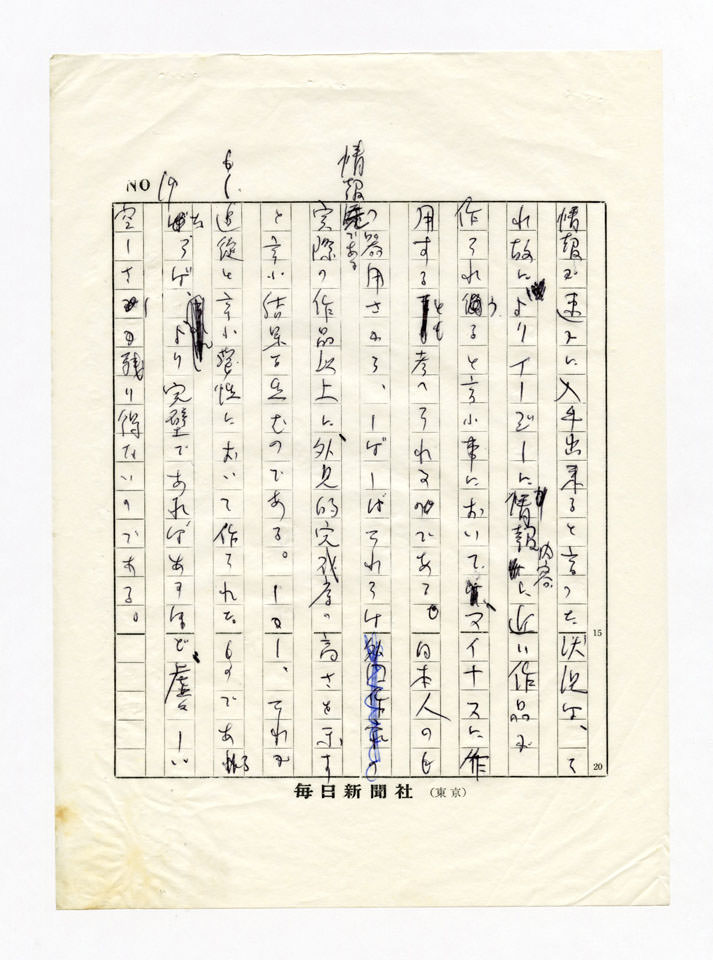 NO 19
情報が速やかに入手出来ると言った状況は、そ
れ故に、よりイージーに情報内容に近い作品が
作られ得ると言う事において、マイナスに作
用するとも考へられるのである。日本人の
器用さから、しばしばそれらは
情報である
実際の作品以上に、外見的完成度の高さを示す
と言う結果を生むのである。しかし、それが
もし追従と言う習性において作られたものであ
るならば、より完璧であればあるほど、虚しい
空しさしか残り得ないのである。
15
20
毎日新聞社 (東京)